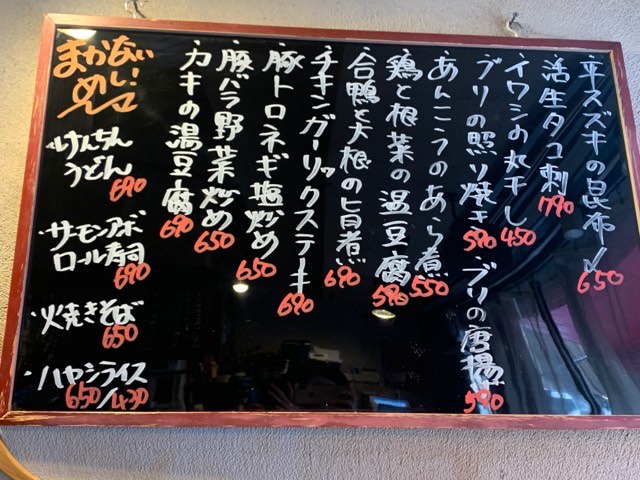 平スズキの昆布〆
650
活生タコ刺
790
イワシの丸干し
450
ブリの照り焼き
590
ブリの唐揚げ
590
あんこうのあら煮
550
鶏と根菜の温豆腐
590
合鴨と大根の旨煮
690
チキンガーリックステーキ
690
豚トロネギ塩炒め
650
豚バラ野菜炒め
650
カキの温豆腐
690
まかない
めし!
けんちん
うどん
690
サーモンアボ
ロール寿司
690
焼きそば
650
ハヤシライス
650/430